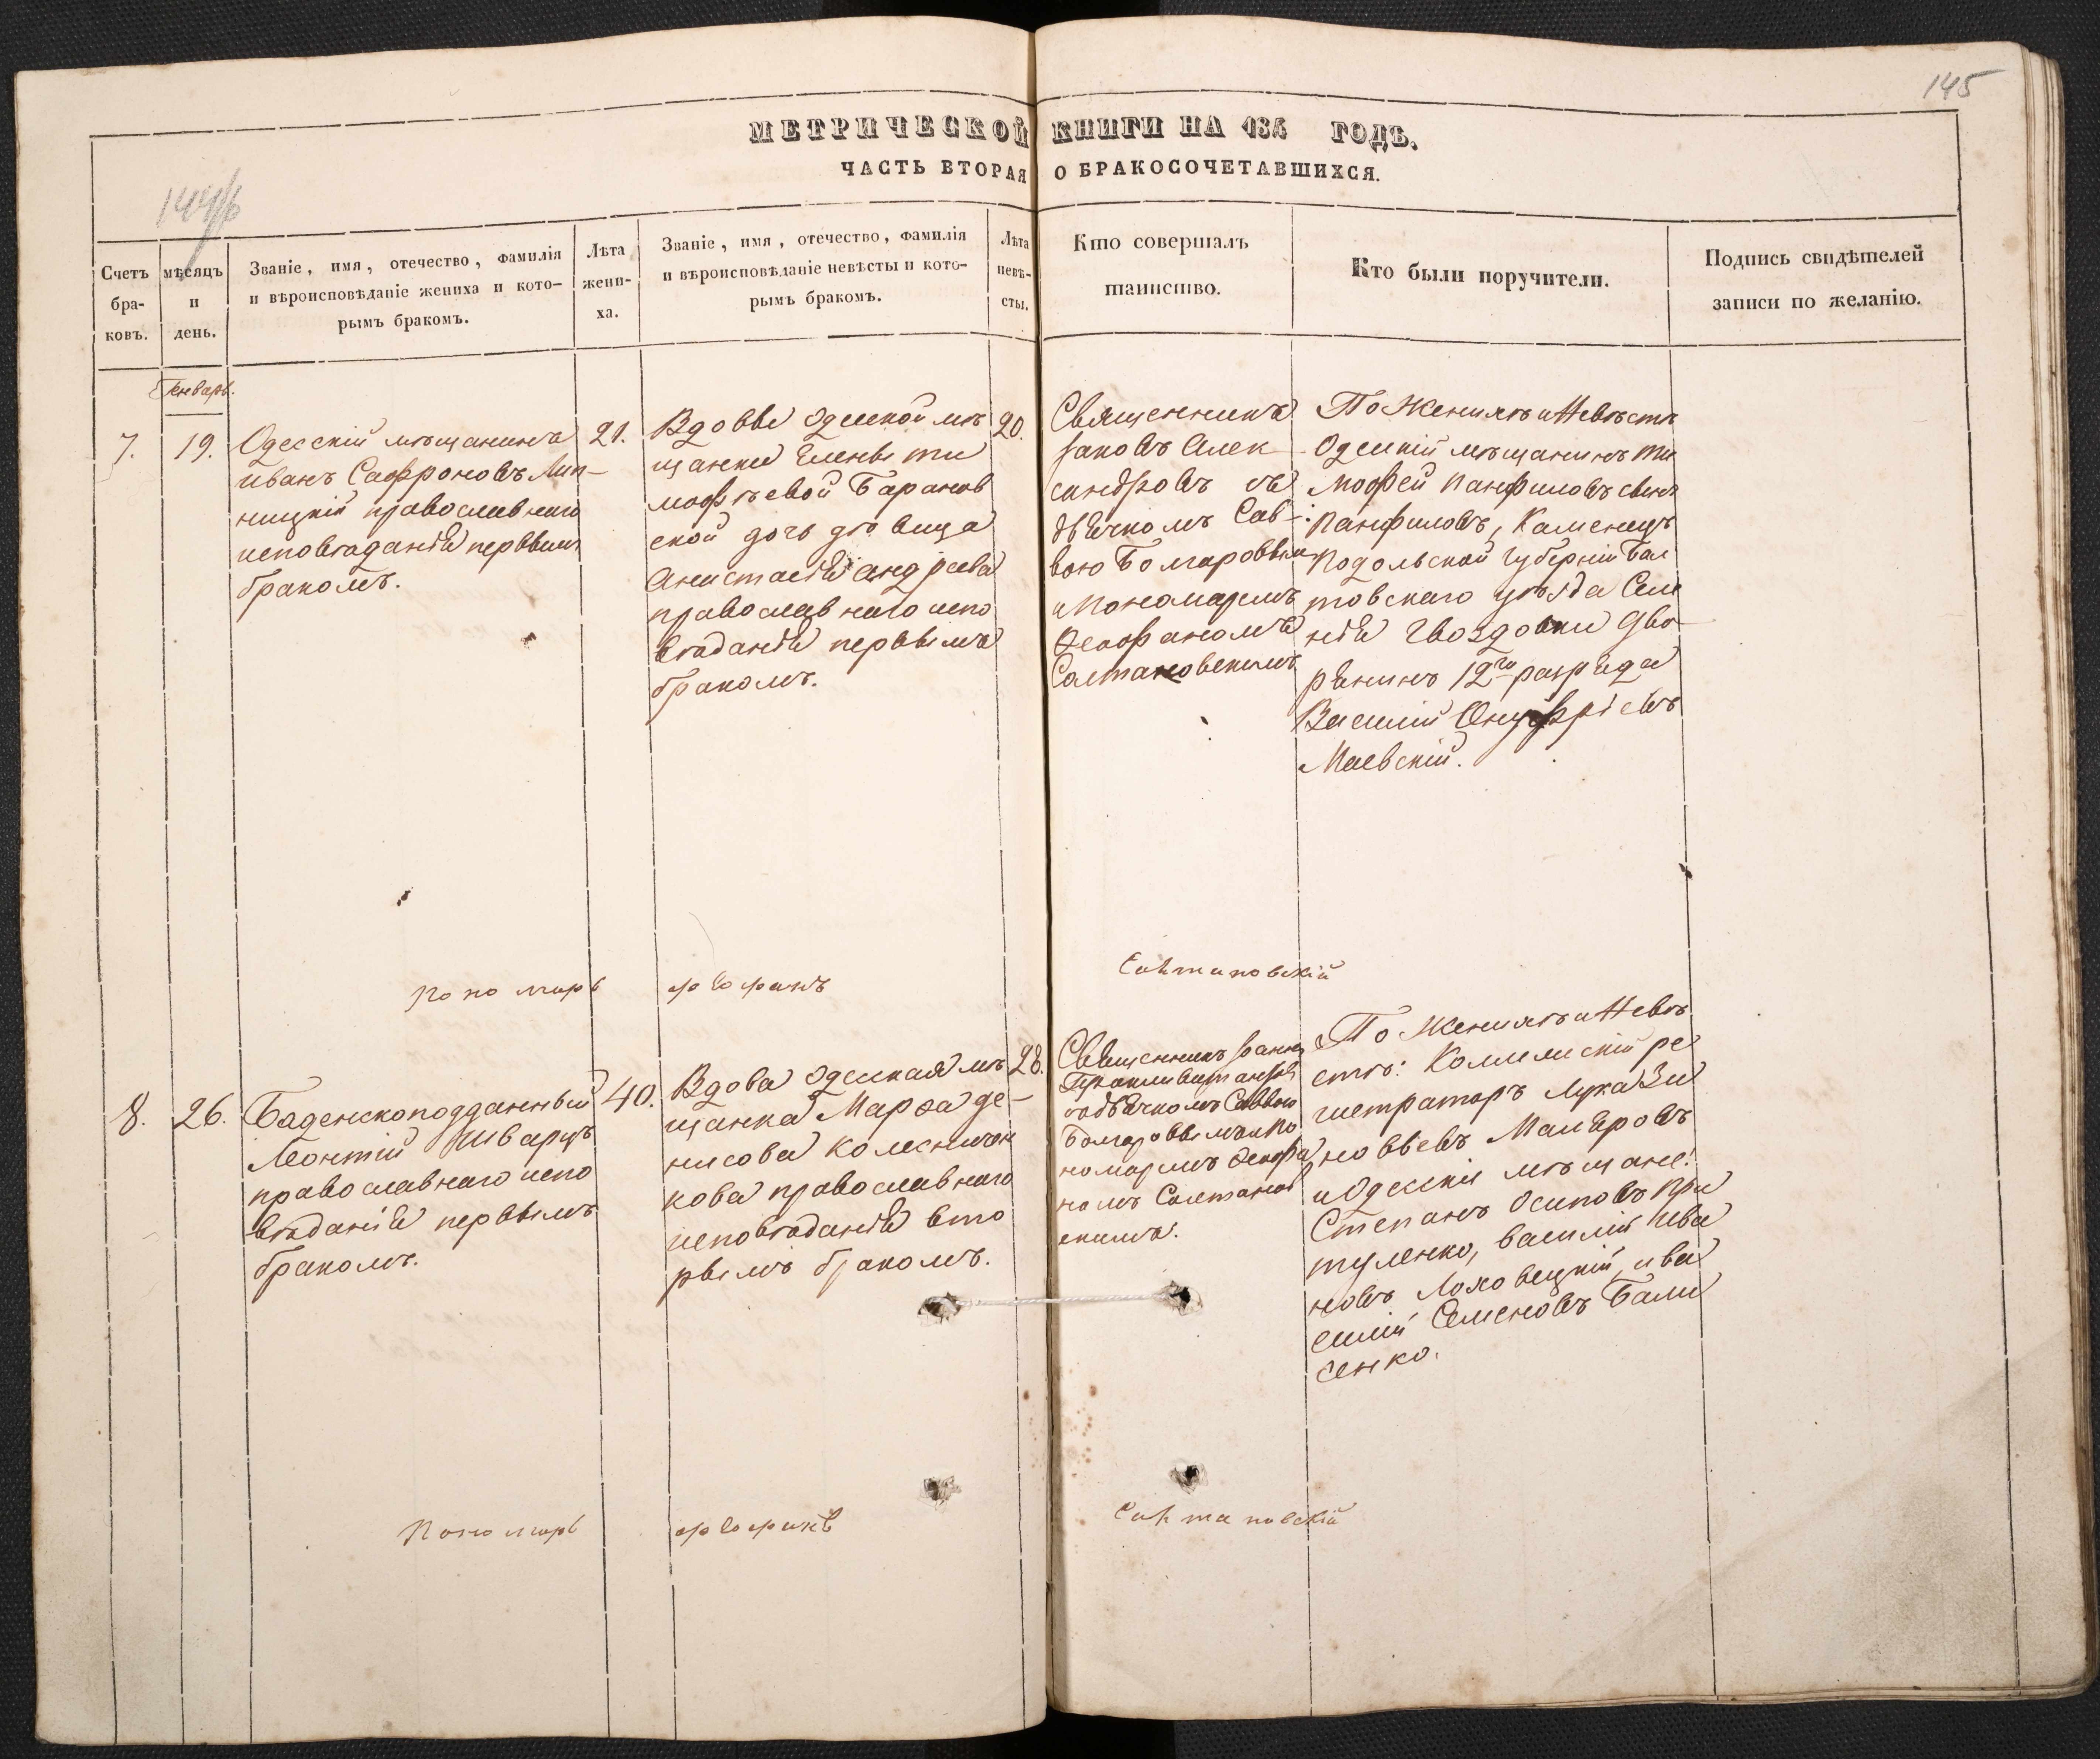 145
МЕТРИЧЕСКОЙ КНИГИ НА 185 ГОДЪ.
ЧАСТЬ ВТОРАЯ О БРАКОСОЧЕТАВШИХСЯ.
Счетъ
бра-
ковъ.
мѣсяцъ
и
день.
Званіе, имя, отечество, фамилія
и вѣроисповѣданіе жениха и кото-
рымъ бракомъ.
Лѣта
жени-
ха.
Званіе, имя, отечество, фамилія
и вѣроисповѣданіе невѣсты и кото-
рымъ бракомъ.
Лѣта
невѣ-
сты.
Кто совершалъ
таинство.
Кто были поручители.
Подпись свидѣтелей
записи по желанію.
Январь.
7.
19.
Одесскій мѣщанинъ
Иванъ Сафроновъ Лип-
ницкій православнаго
исповѣданія первымъ
бракомъ.
21.
Вдовы Одесской мѣ
щанки Елены Ти
мофѣевой Баранов
ской дочь дѣвица
Анастасія Андреева
православнаго испо
вѣданія первымъ
бракомъ.
20.
Священникъ
Іаковъ Алек
сандровъ съ
дьячкомъ Сав-
вою Болгаровымъ
и Пономаремъ
Ѳеофаномъ
Солтановскимъ
По Женихѣ и Невѣстѣ
Одесскій мѣщанинъ Ти
мофей Панфиловъ сынъ
Панфиловъ, Каменецъ
Подольской Губерніи Бал
товскаго уѣзда Селе
нія Гвоздовки Дво-
рянинъ 12го разряда
Василій Онуфріевъ
Маевскій.
Пономарь Феофанъ Салтановскій
8.
26.
Баденскоподданный
Леонтій Шварцъ
православнаго испо
вѣданія первымъ
бракомъ.
40.
Вдова Одесская мѣ
щанка Марѳа Де-
нисова Колесни
кова православнаго
исповѣданія вто
рымъ бракомъ.
28.
Священникъ Іоаннъ
съ дьячкомъ Саввою
Болгаровымъ и По
номаремъ Ѳеофа
номъ Солтанов
скимъ.
По Женихѣ и Невѣ
стѣ: Коллежскій ре
гистраторъ Лука Зи
новьевъ Маляровъ
и Одесскіе мѣщане:
Степанъ Осиповъ При
туленко, Василій Ива
новъ Лоховецкій, и Ва
силій Семеновъ Бали
сенко.
Пономарь Феофанъ Салтановскій